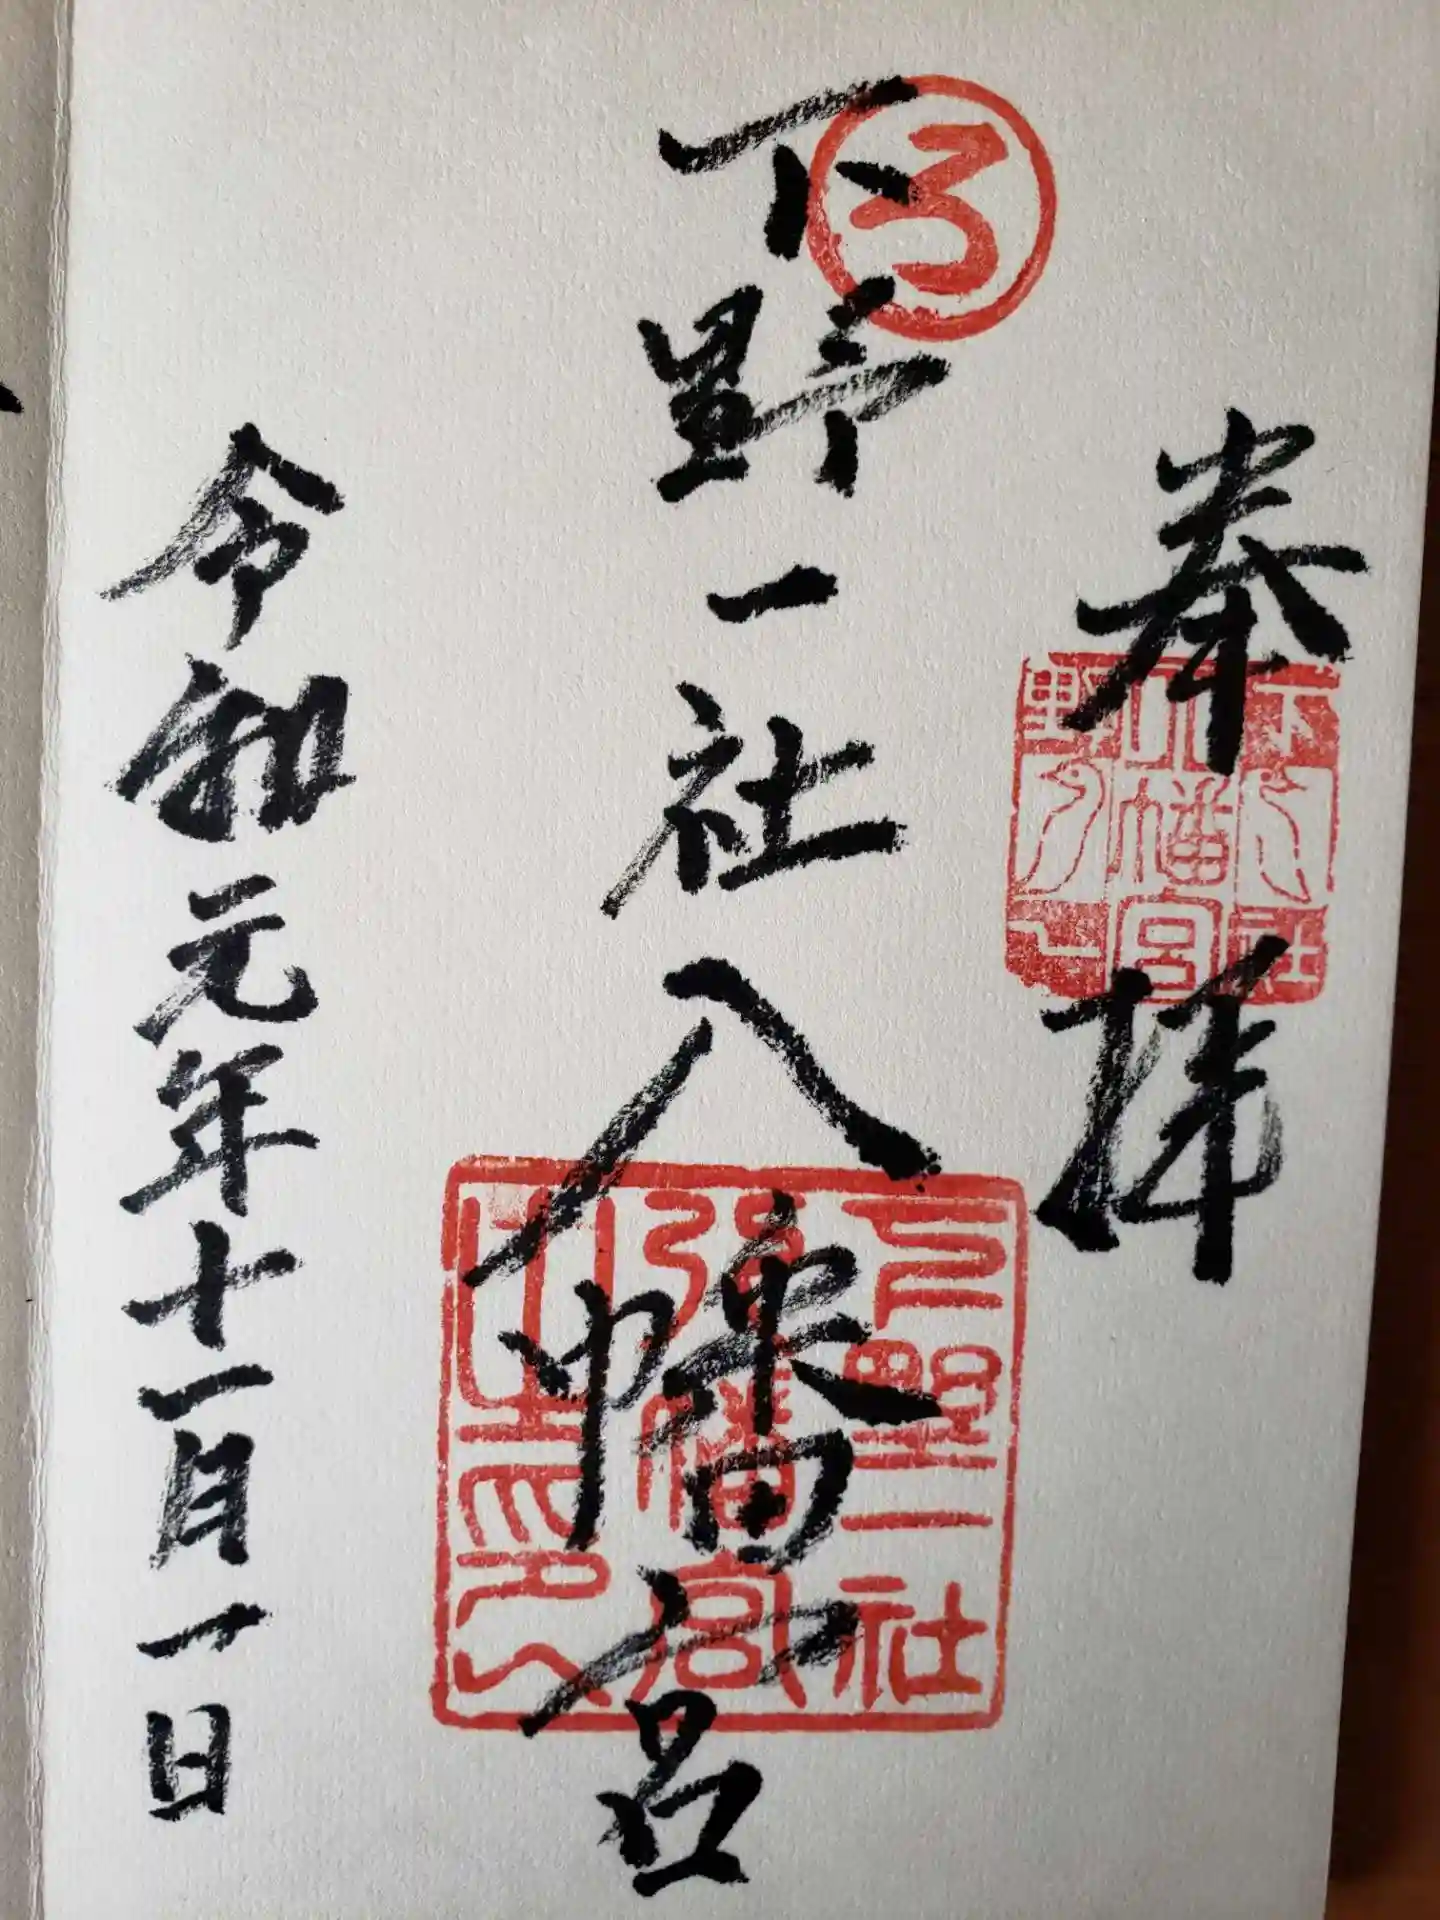 奉拝
下野一社八幡宮
令和元年十一月一日
ろ
下野一社
八幡宮
下野一社
八幡宮